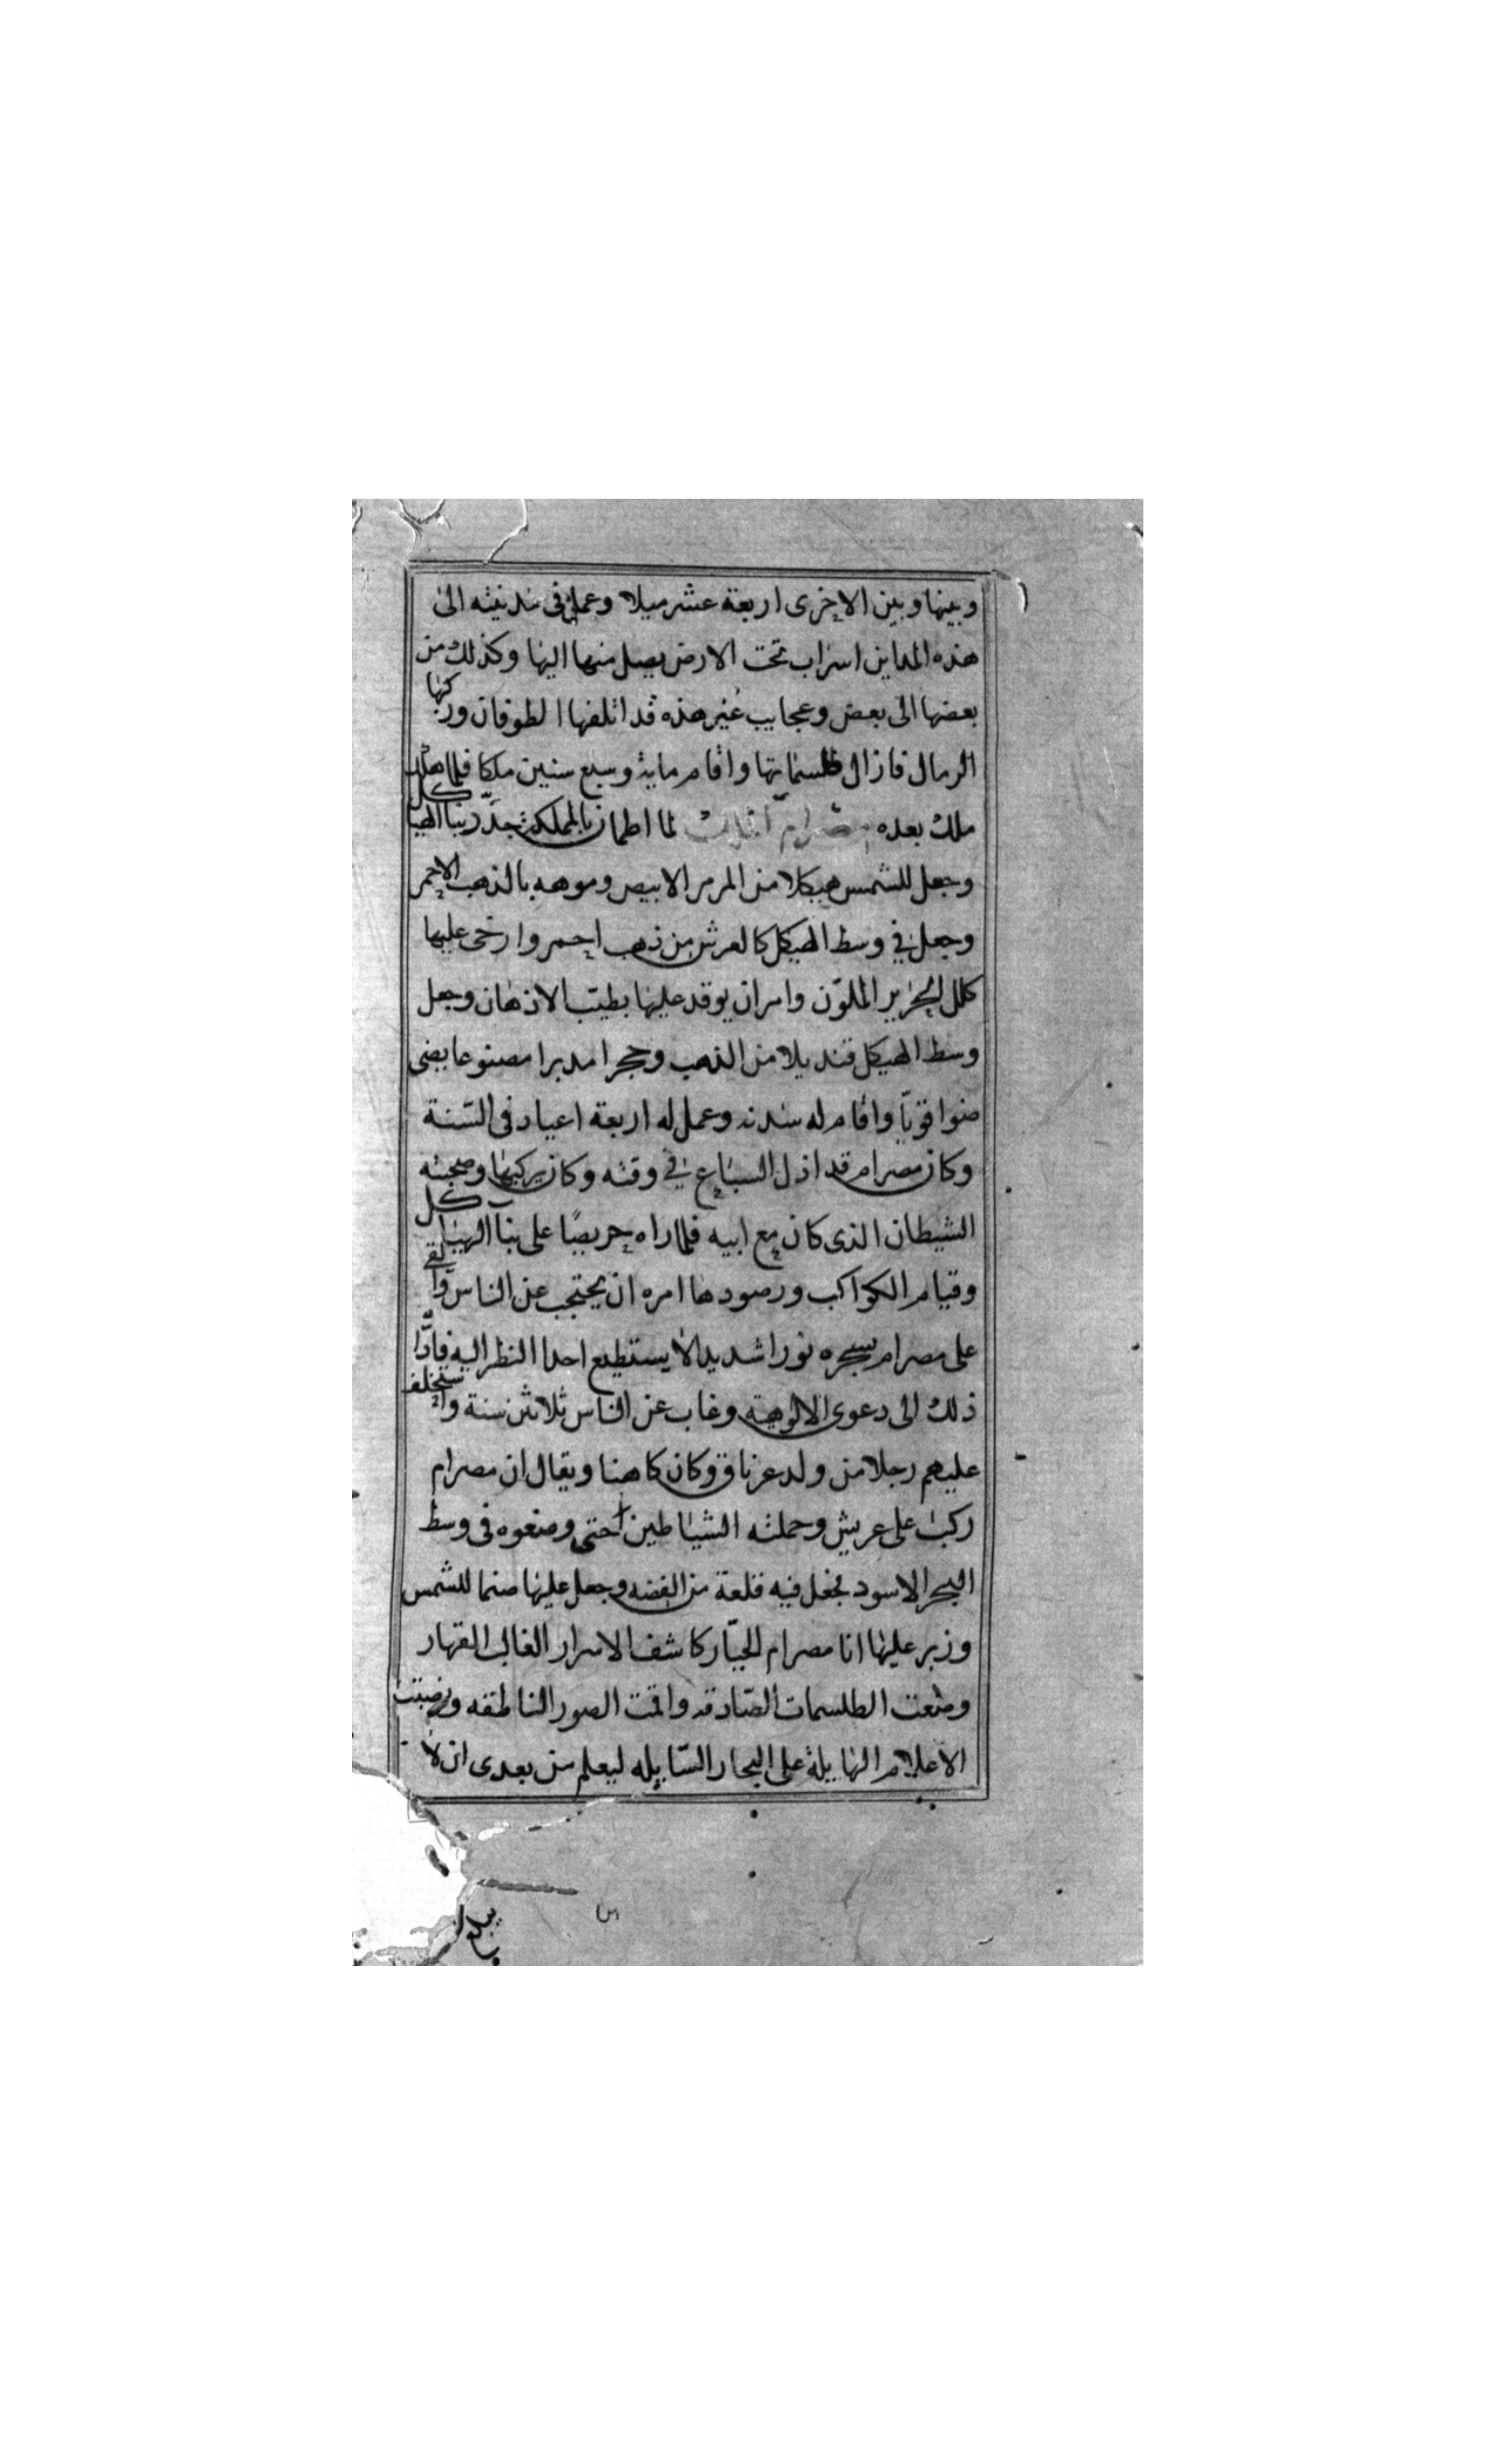 وبينها وبين الاخرى اربعة عشر ميلا وعمل في مدينته الى
هذه المداين اسراب تحت الارض يصل منها اليها وكذلك من
بعضها الى بعض وعجايب غير هذه قد اتلفها الطوفان وركبها
الرمال فازال طلسماتها واقام ماية وسبع سنين ملكا فلما هلك
ملك بعده مصرام الملك لما اطمان بالمملكة جدد بنا الهياكل
وجعل للشمس هيكلا من المرمر الابيض وموهه بالذهب الاحمر
وجعل في وسط الهيكل كالعرش من ذهب احمر وارخى عليها
كلل الحرير الملون وامر ان يوقد عليها بطيب الادهان وجعل
وسط الهيكل قنديلا من الذهب وحجرا مدبرا مصنوعا يضى
ضوا قويا واقام له سدنه وعمل له اربعة اعياد في السنة
وكان مصرام قد اذل السباع في وقته وكان يركبها وصحبته
الشيطان الذى كان مع ابيه فلما راه حريصا على بنا الهياكل
وقيام الكواكب ورصودها امره ان يحتجب عن الناس والقى
على مصرام بسحره نورا شديدا لا يستطيع احدا النظر اليه فادا
ذلك الى دعوى الالوهية وغاب عن الناس ثلاثين سنة واستخلف
عليهم رجلا من ولد عرناق وكان كاهنا ويقال ان مصرام
ركب على عريش وحملته الشياطين حتى وضعوه في وسط
البحر الاسود فجعل فيه قلعة من الفضه وجعل عليها صنما للشمس
وزبر عليها انا مصرام الجبار كاشف الاسرار الغالب القهار
وضعت الطلسمات الصادقه واقمت الصور الناطقه ونصبت
الاعلام الهايلة على البحار السايله ليعلم من بعدى ان لا